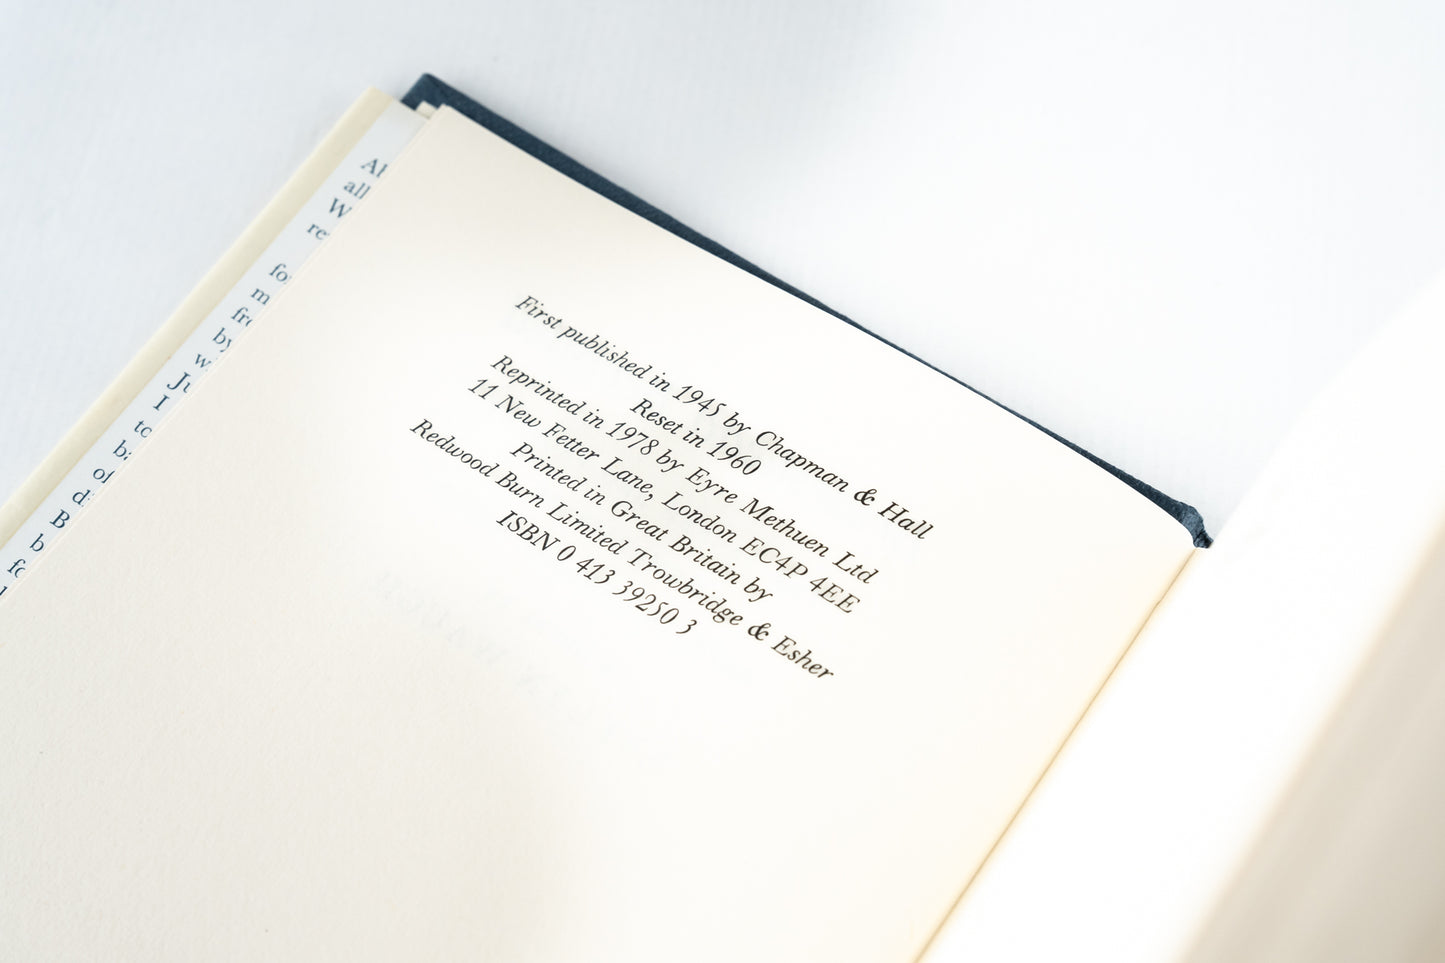 First published in 1945 by Chapman & Hall
Reset in 1960
Reprinted in 1978 by Eyre Methuen Ltd
11 New Fetter Lane, London EC4P 4EE
Printed in Great Britain by
Redwood Burn Limited Trowbridge & Esher
ISBN 0 413 39250 3